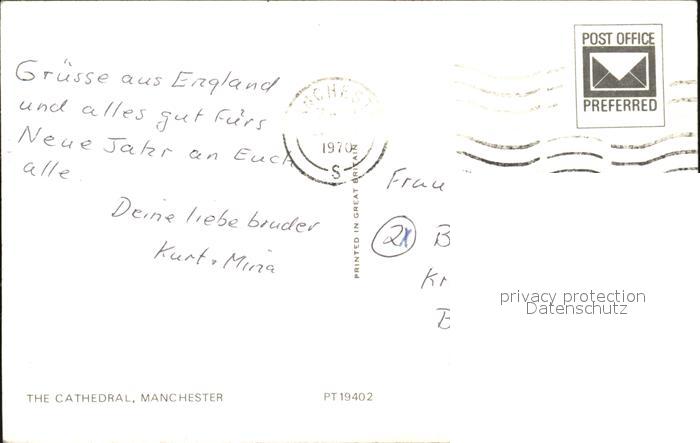 Grüsse aus England
und alles gut fürs
Neue Jahr an Euch
alle.
Deine liebe bruder
Kurt + Mina
THE CATHEDRAL, MANCHESTER
PT19402
PRINTED IN GREAT BRITAIN
NCHEST
1970
S
POST OFFICE
PREFERRED
Frau
2x
B
Kr
B
privacy protection
Datenschutz